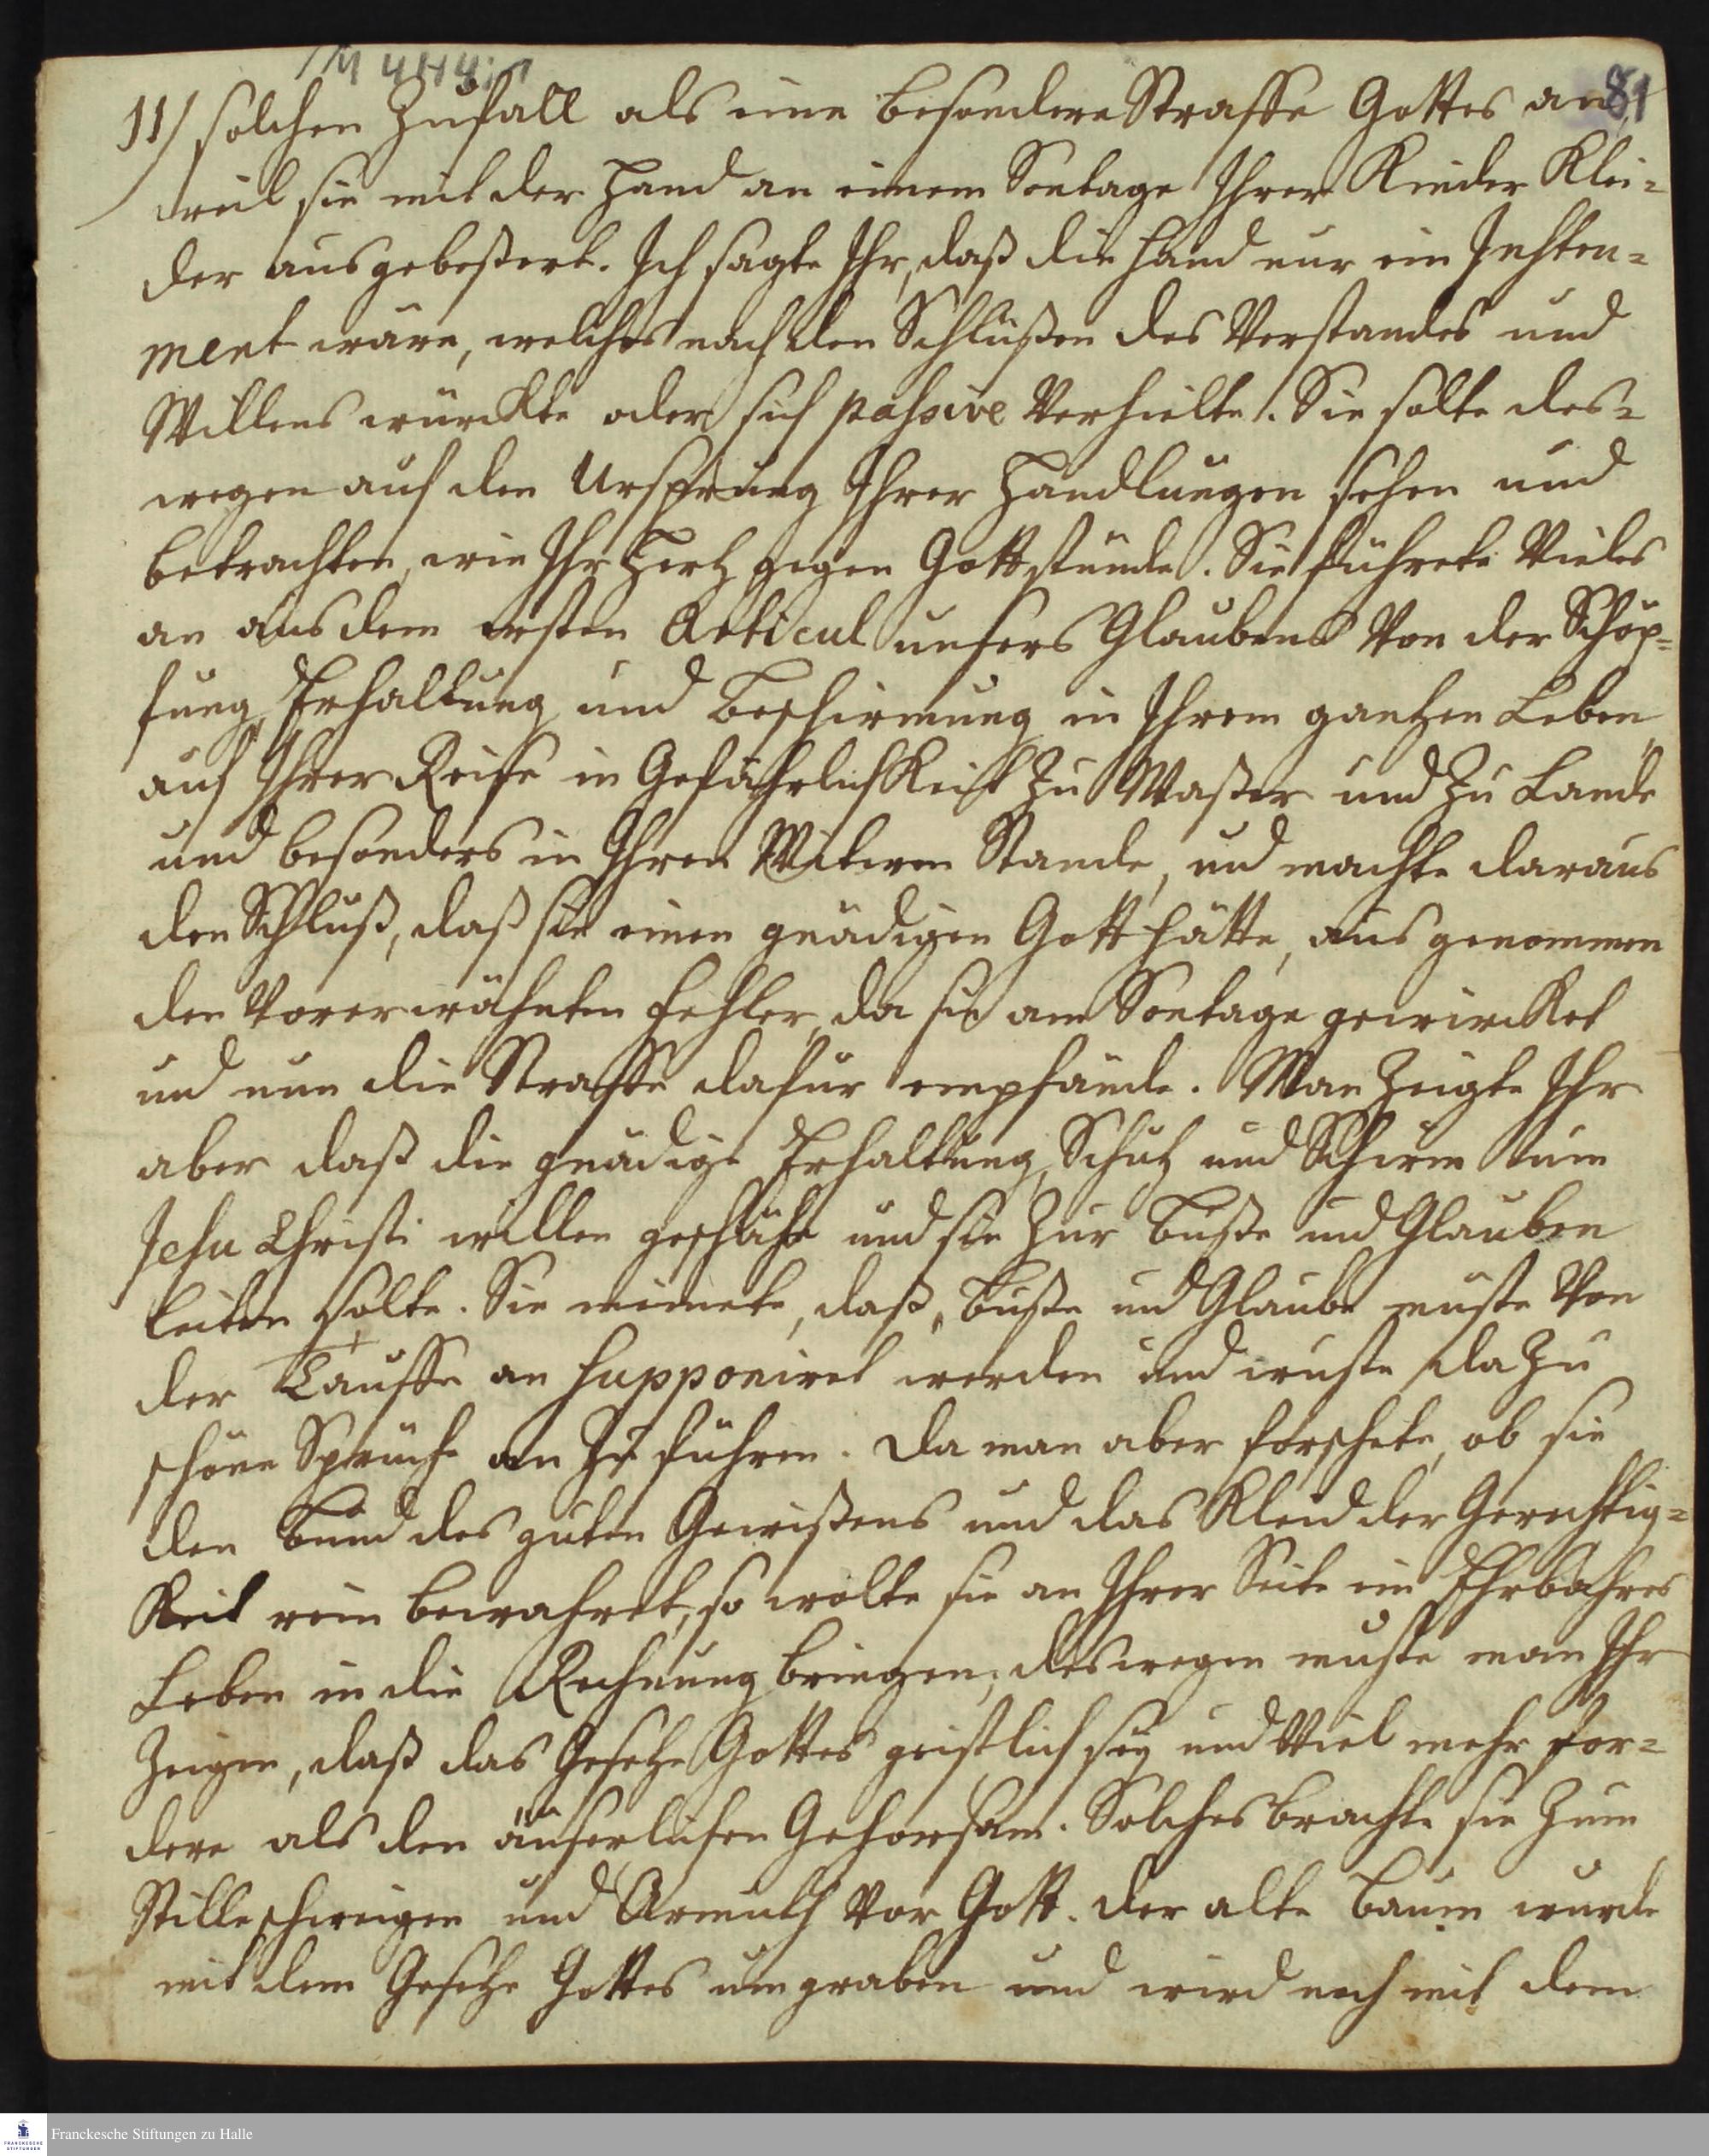 81
11) solchen Zufall als eine besondere Straffe Gottes an,
weil sie mit der Hand an einem Sontage Ihrer Kinder Klei-
der ausgebeßert. Ich sagte Ihr, daß die Hand nur ein Instru-
ment wäre, welches nach den Schlüßen des Verstandes und
Willens würckte oder sich passive verhielte. Sie solte des-
wegen auf den Ursprung Ihrer Handlungen sehen und
betrachten, wie Ihr Hertz gegen Gott stünde. Sie führete vieles
an aus dem ersten Articul unsers Glaubens von der Schöp-
fung, Erhaltung und Beschirmung in Ihrem gantzen Leben,
auf Ihrer Reise in Gefährlichkeit zu Waßer und zu Lande
und besonders in Ihren Witwen Stande, und machte daraus
den Schluß, daß sie einen gnädigen Gott hätte, aus genommen
den vorerwähnten Fehler, da sie am Sontage gewircket
und nun die Straffe dafür empfände. Man zeigte Ihr
aber daß die gnädige Erhaltung, Schutz und Schirm um
Jesu Christi willen geschähe und sie zur Buße und Glauben
leiten solte. Sie meinete, daß Buße und Glaube müste von
der Tauffe an supponiret werden und wuste dazu
schöne Sprüche an zu führen. Da man aber forschete, ob sie
den Bund des guten Gewißens und das Kleid der Gerechtig-
keit rein bewahret, so wolte sie an Ihrer Seite ein Ehrbahres
Leben in die Rechnung bringen; deswegen muste man Ihr
zeigen, daß das Gesetze Gottes geistlich sey und viel mehr for-
dere als den äuserlichen Gehorsam. Solches brachte sie zum
Stilleschweigen und Armuth vor Gott. Der alte Baum wurde
mit dem Gesetze Gottes umgraben und wird noch mit dem
Franckesche Stiftungen zu Halle